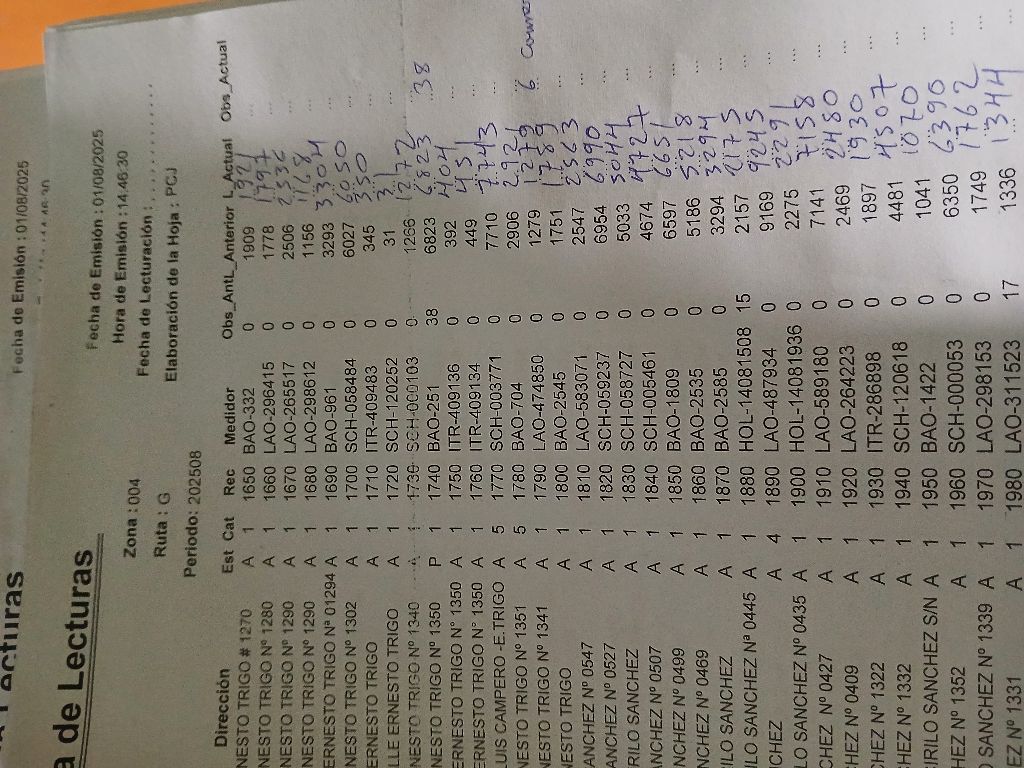 ecturas
Fecha de Emisión : 01/08/2025
a de Lecturas
Fecha de Emisión : 01/08/2025
Zona : 004
Hora de Emisión :14:46:30
Ruta : G
Fecha de Lecturación :
Periodo: 202508
Elaboración de la Hoja : PCJ
Dirección Est Cat Rec Medidor Obs_Ant L_Anterior L_Actual Obs_Actual
NESTO TRIGO # 1270 A 1 1650 BAO-332 0 1909 1921
NESTO TRIGO Nº 1280 A 1 1660 LAO-296415 0 1778 1797
NESTO TRIGO Nº 1290 A 1 1670 LAO-265517 0 2506 2536
NESTO TRIGO Nº 1290 A 1 1680 LAO-298612 0 1156 1168
ERNESTO TRIGO Nª 01294 A 1 1690 BAO-961 0 3293 3304
NESTO TRIGO Nº 1302 A 1 1700 SCH-058484 0 6027 6050
ERNESTO TRIGO A 1 1710 ITR-409483 0 345 350
LLE ERNESTO TRIGO A 1 1720 SCH-120252 0 31 31
NESTO TRIGO Nº 1340 A 1 1730 SCH-000103 0 1256 1272
NNESTO TRIGO Nº 1350 P 1 1740 BAO-251 38 6823 6823 38
ERNESTO TRIGO N° 1350 A 1 1750 ITR-409136 0 392 404
ERNESTO TRIGO N° 1350 A 1 1760 ITR-409134 0 449 451
UIS CAMPERO -E.TRIGO A 5 1770 SCH-003771 0 7710 7743
NESTO TRIGO Nº 1351 A 5 1780 BAO-704 0 2906 2921
NESTO TRIGO Nº 1341 A 1 1790 LAO-474850 0 1279 1279 6
NESTO TRIGO A 1 1800 BAO-2545 0 1751 1789
ANCHEZ Nº 0547 A 1 1810 LAO-583071 0 2547 2563
ANCHEZ Nº 0527 A 1 1820 SCH-059237 0 6954 6990
RILO SANCHEZ A 1 1830 SCH-058727 0 5033 5044
ANCHEZ Nº 0507 A 1 1840 SCH-005461 0 4674 4727
NCHEZ Nº 0499 A 1 1850 BAO-1809 0 6597 6651
NCHEZ Nº 0469 A 1 1860 BAO-2535 0 5186 5218
ILO SANCHEZ A 1 1870 BAO-2585 0 3294 3294
LO SANCHEZ Nª 0445 A 1 1880 HOL-14081508 15 2157 2175
CHEZ A 4 1890 LAO-487934 0 9169 9245
LO SANCHEZ Nº 0435 A 1 1900 HOL-14081936 0 2275 2291
CHEZ Nº 0427 A 1 1910 LAO-589180 0 7141 7158
HEZ Nº 0409 A 1 1920 LAO-264223 0 2469 2480
CHEZ Nº 1322 A 1 1930 ITR-286898 0 1897 1930
HEZ Nº 1332 A 1 1940 SCH-120618 0 4481 4507
IRILO SANCHEZ S/N A 1 1950 BAO-1422 0 1041 1070
HEZ Nº 1352 A 1 1960 SCH-000053 0 6350 6390
O SANCHEZ Nº 1339 A 1 1970 LAO-298153 0 1749 1762
EZ Nº 1331 A 1 1980 LAO-311523 17 1336 1344